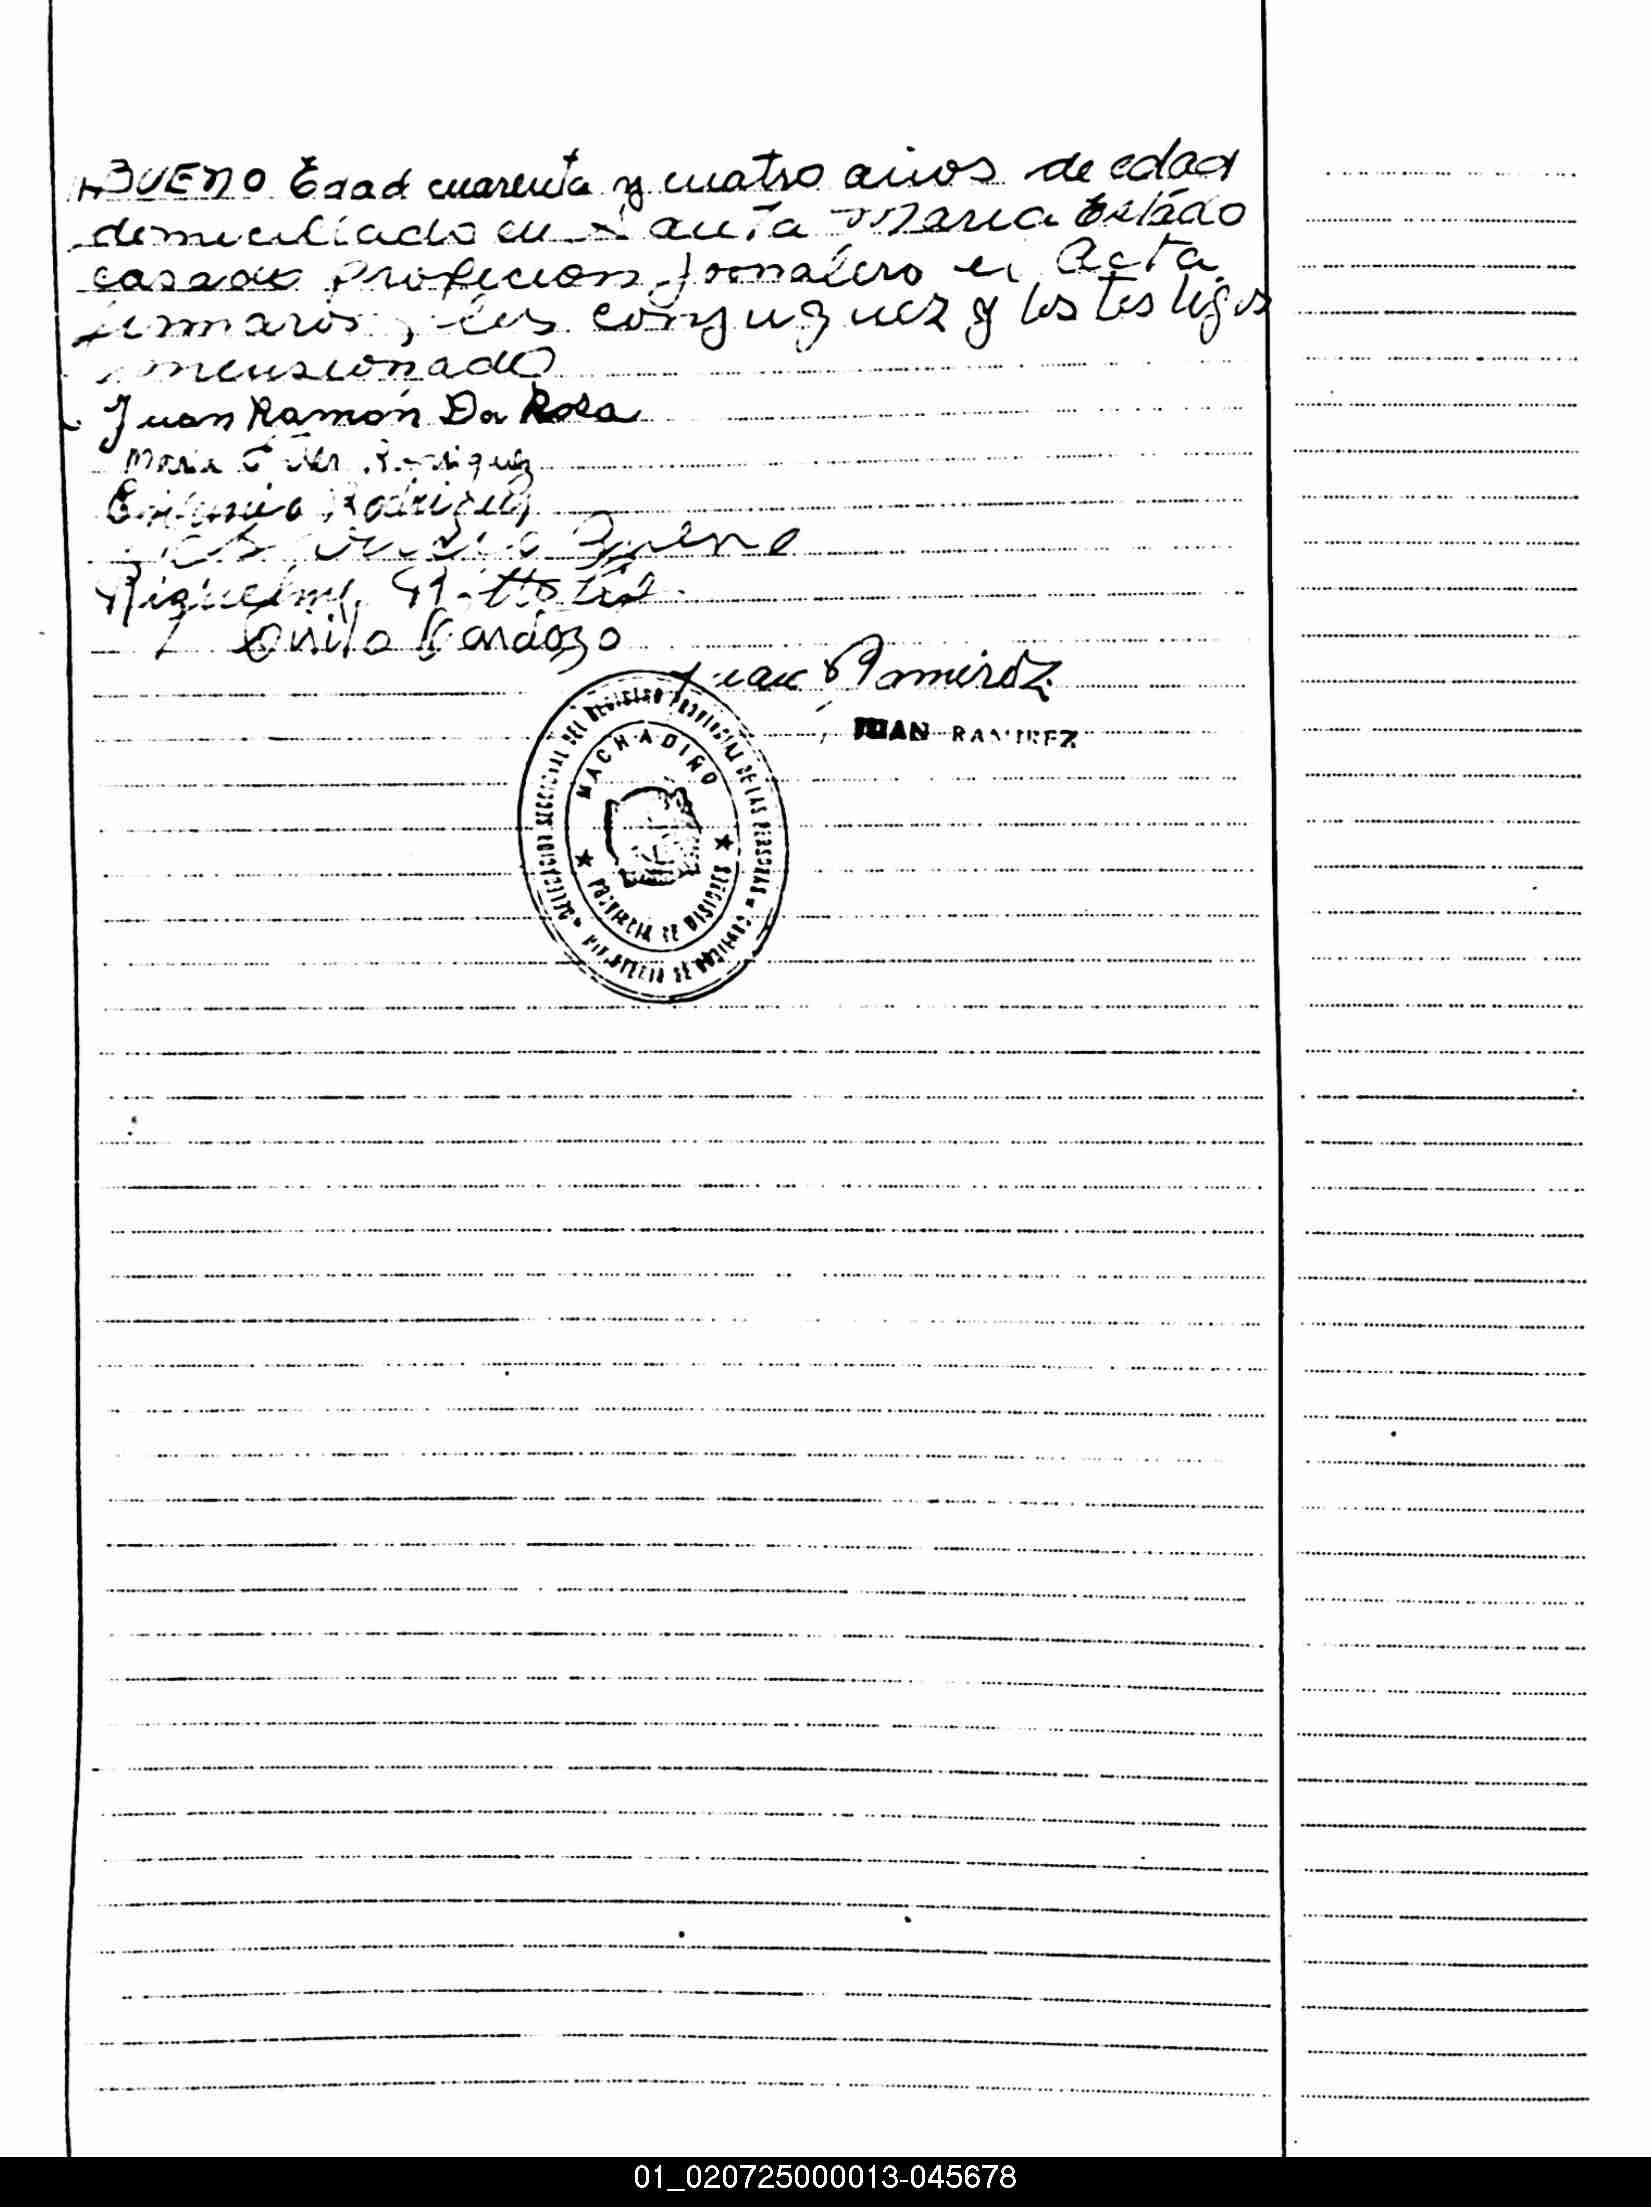 BUENO Edad cuarenta y cuatro años de edad
domiciliado en Santa Maria Estado
casado Profecion Jornalero el Acta
firmaron, los conyuguez y los testigos
mensionado
Juan Ramón Da Rosa
Maria Rodriguez
Rodriguez
Bueno
Riquelme
Cardozo
Juan Ramirez
JUAN RAMIREZ
DELEGACION SECCIONAL DEL REGISTRO PROVINCIAL DE LAS PERSONAS
MACHADIÑO
PROVINCIA DE MISIONES
01_020725000013-045678